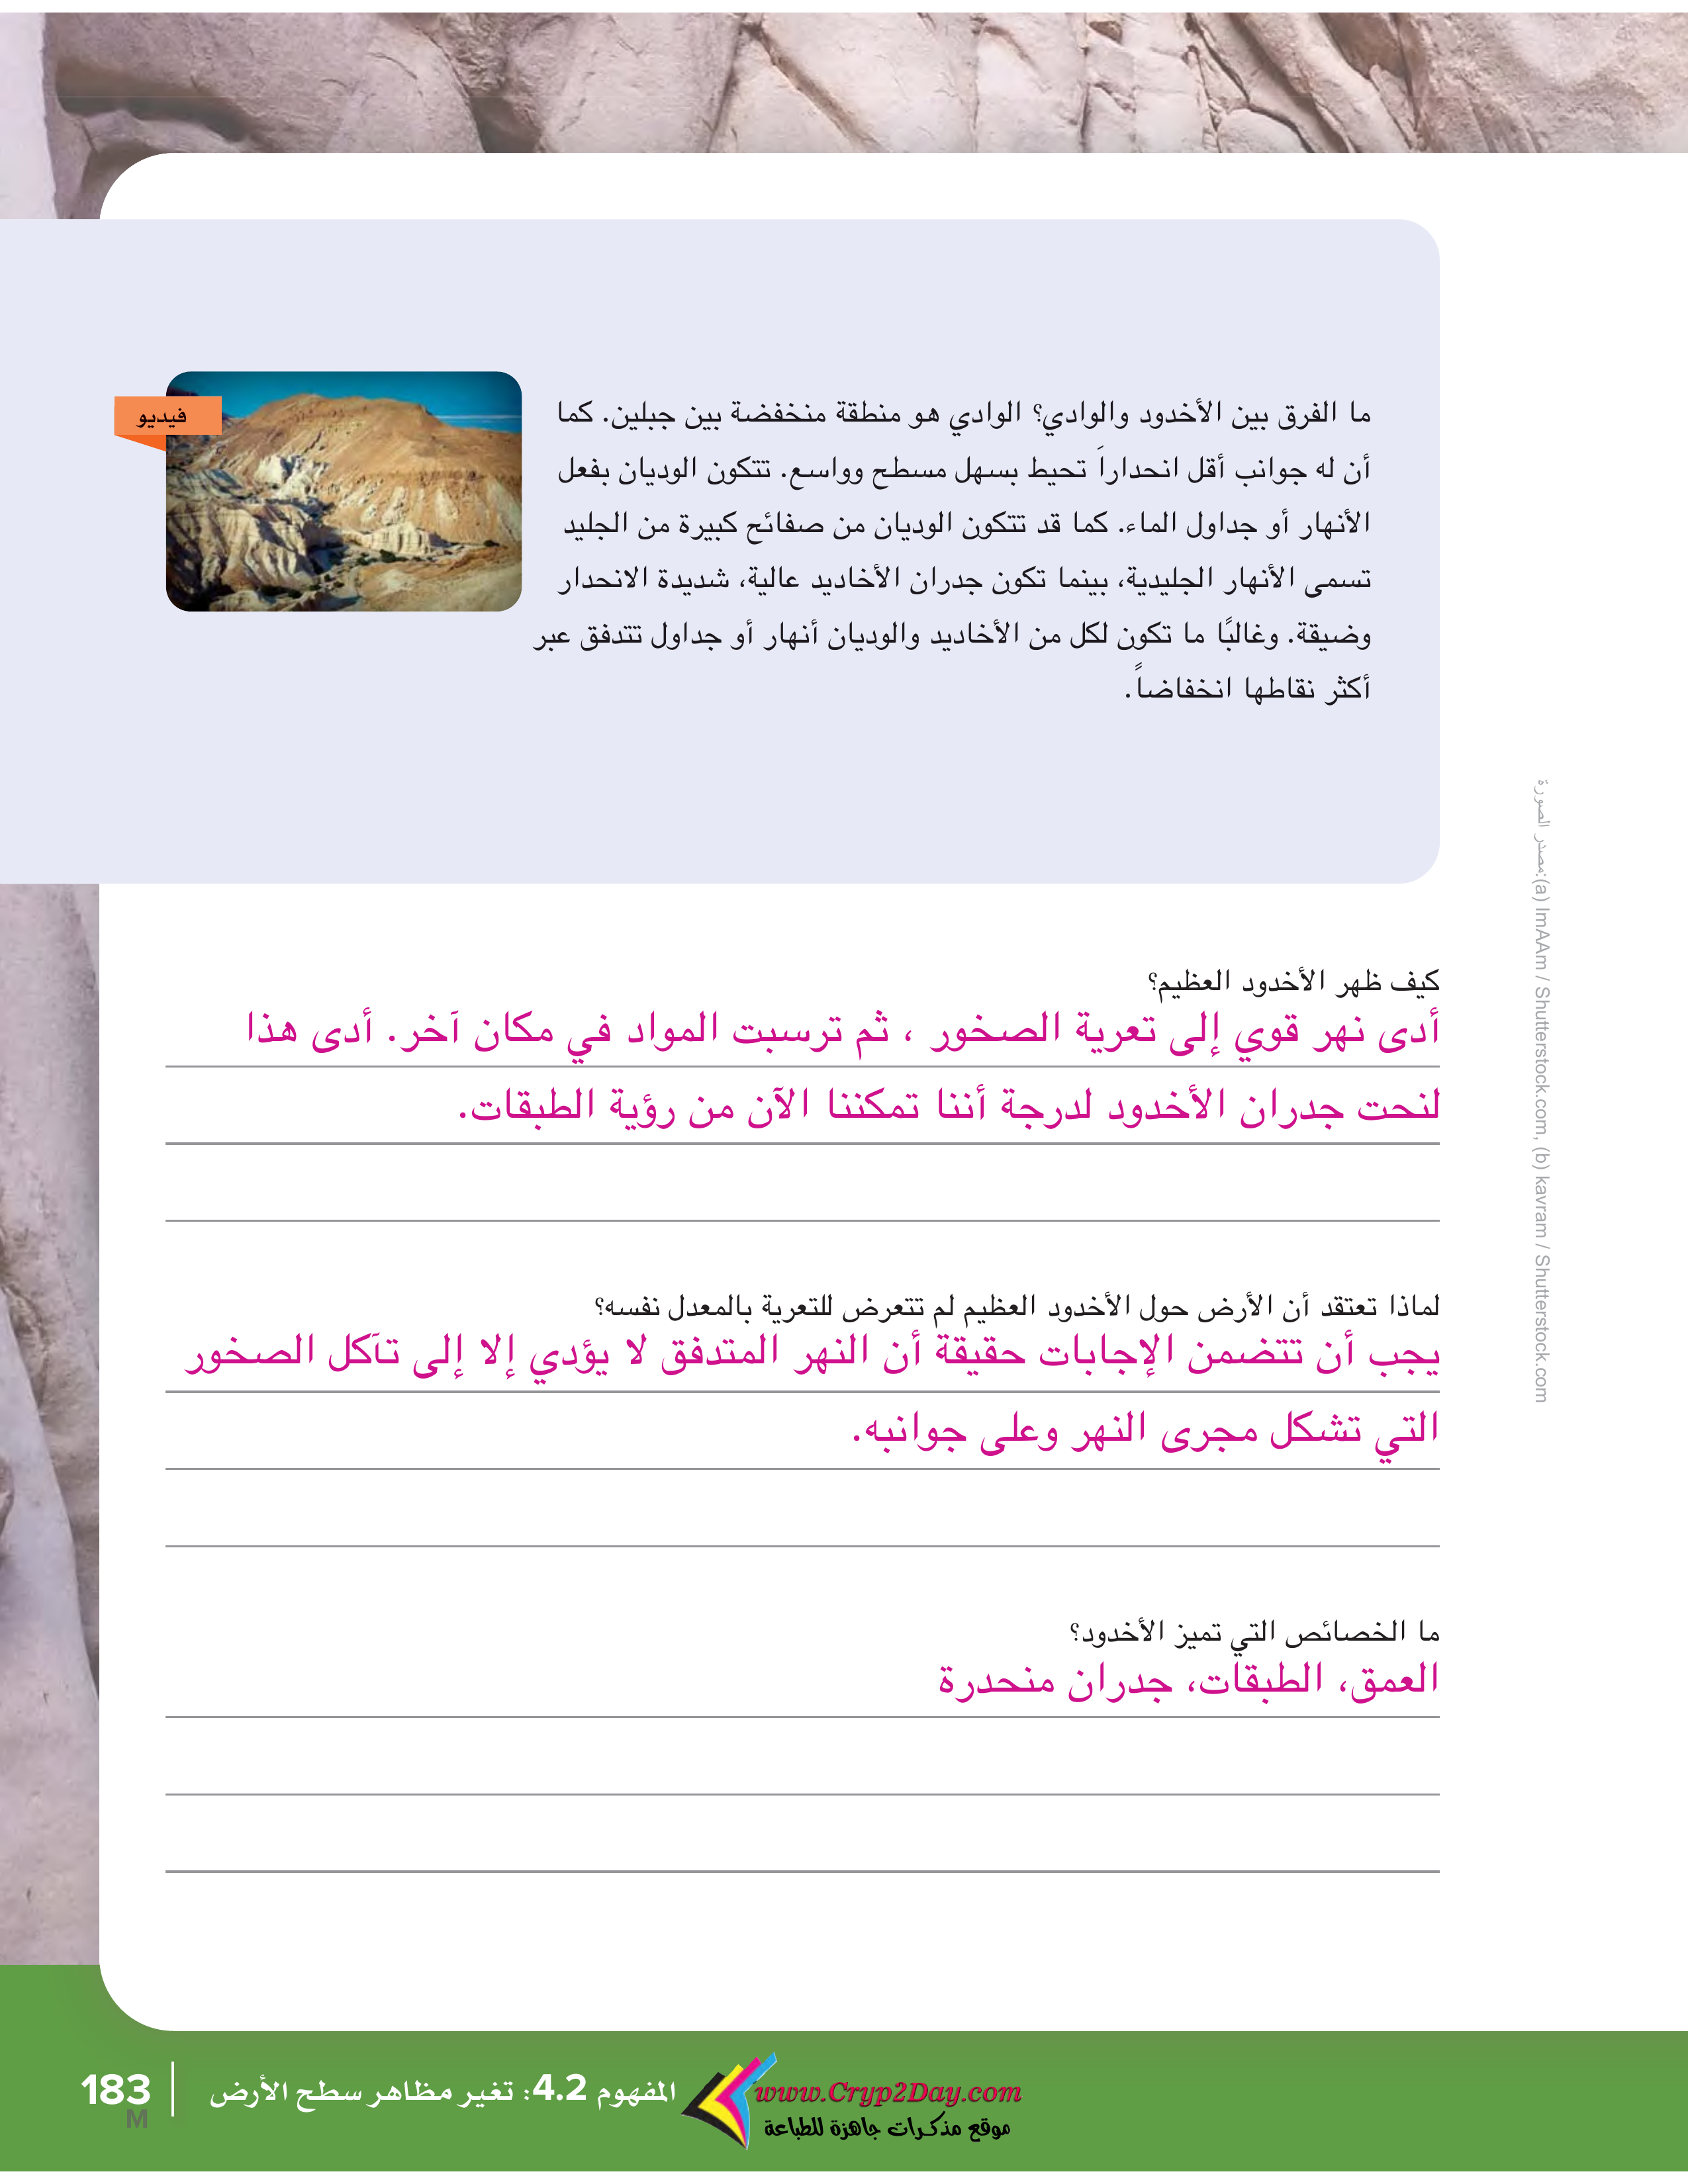 فيديو
ما الفرق بين الأخدود والوادي؟ الوادي هو منطقة منخفضة بين جبلين. كما
أن له جوانب أقل انحداراَ تحيط بسهل مسطح وواسع. تتكون الوديان بفعل
الأنهار أو جداول الماء. كما قد تتكون الوديان من صفائح كبيرة من الجليد
تسمى الأنهار الجليدية، بينما تكون جدران الأخاديد عالية، شديدة الانحدار
وضيقة. وغالبًا ما تكون لكل من الأخاديد والوديان أنهار أو جداول تتدفق عبر
أكثر نقاطها انخفاضاً.
كيف ظهر الأخدود العظيم؟
أدى نهر قوي إلى تعرية الصخور ، ثم ترسبت المواد في مكان آخر. أدى هذا
لنحت جدران الأخدود لدرجة أننا تمكننا الآن من رؤية الطبقات.
لماذا تعتقد أن الأرض حول الأخدود العظيم لم تتعرض للتعرية بالمعدل نفسه؟
يجب أن تتضمن الإجابات حقيقة أن النهر المتدفق لا يؤدي إلا إلى تآكل الصخور
التي تشكل مجرى النهر وعلى جوانبه.
ما الخصائص التي تميز الأخدود؟
العمق، الطبقات، جدران منحدرة
مصدر الصورة:(a) ImAAm / Shutterstock.com, (b) kavram / Shutterstock.com
المفهوم 4.2: تغير مظاهر سطح الأرض
183
M
www.Cryp2Day.com
موقع مذكرات جاهزة للطباعة